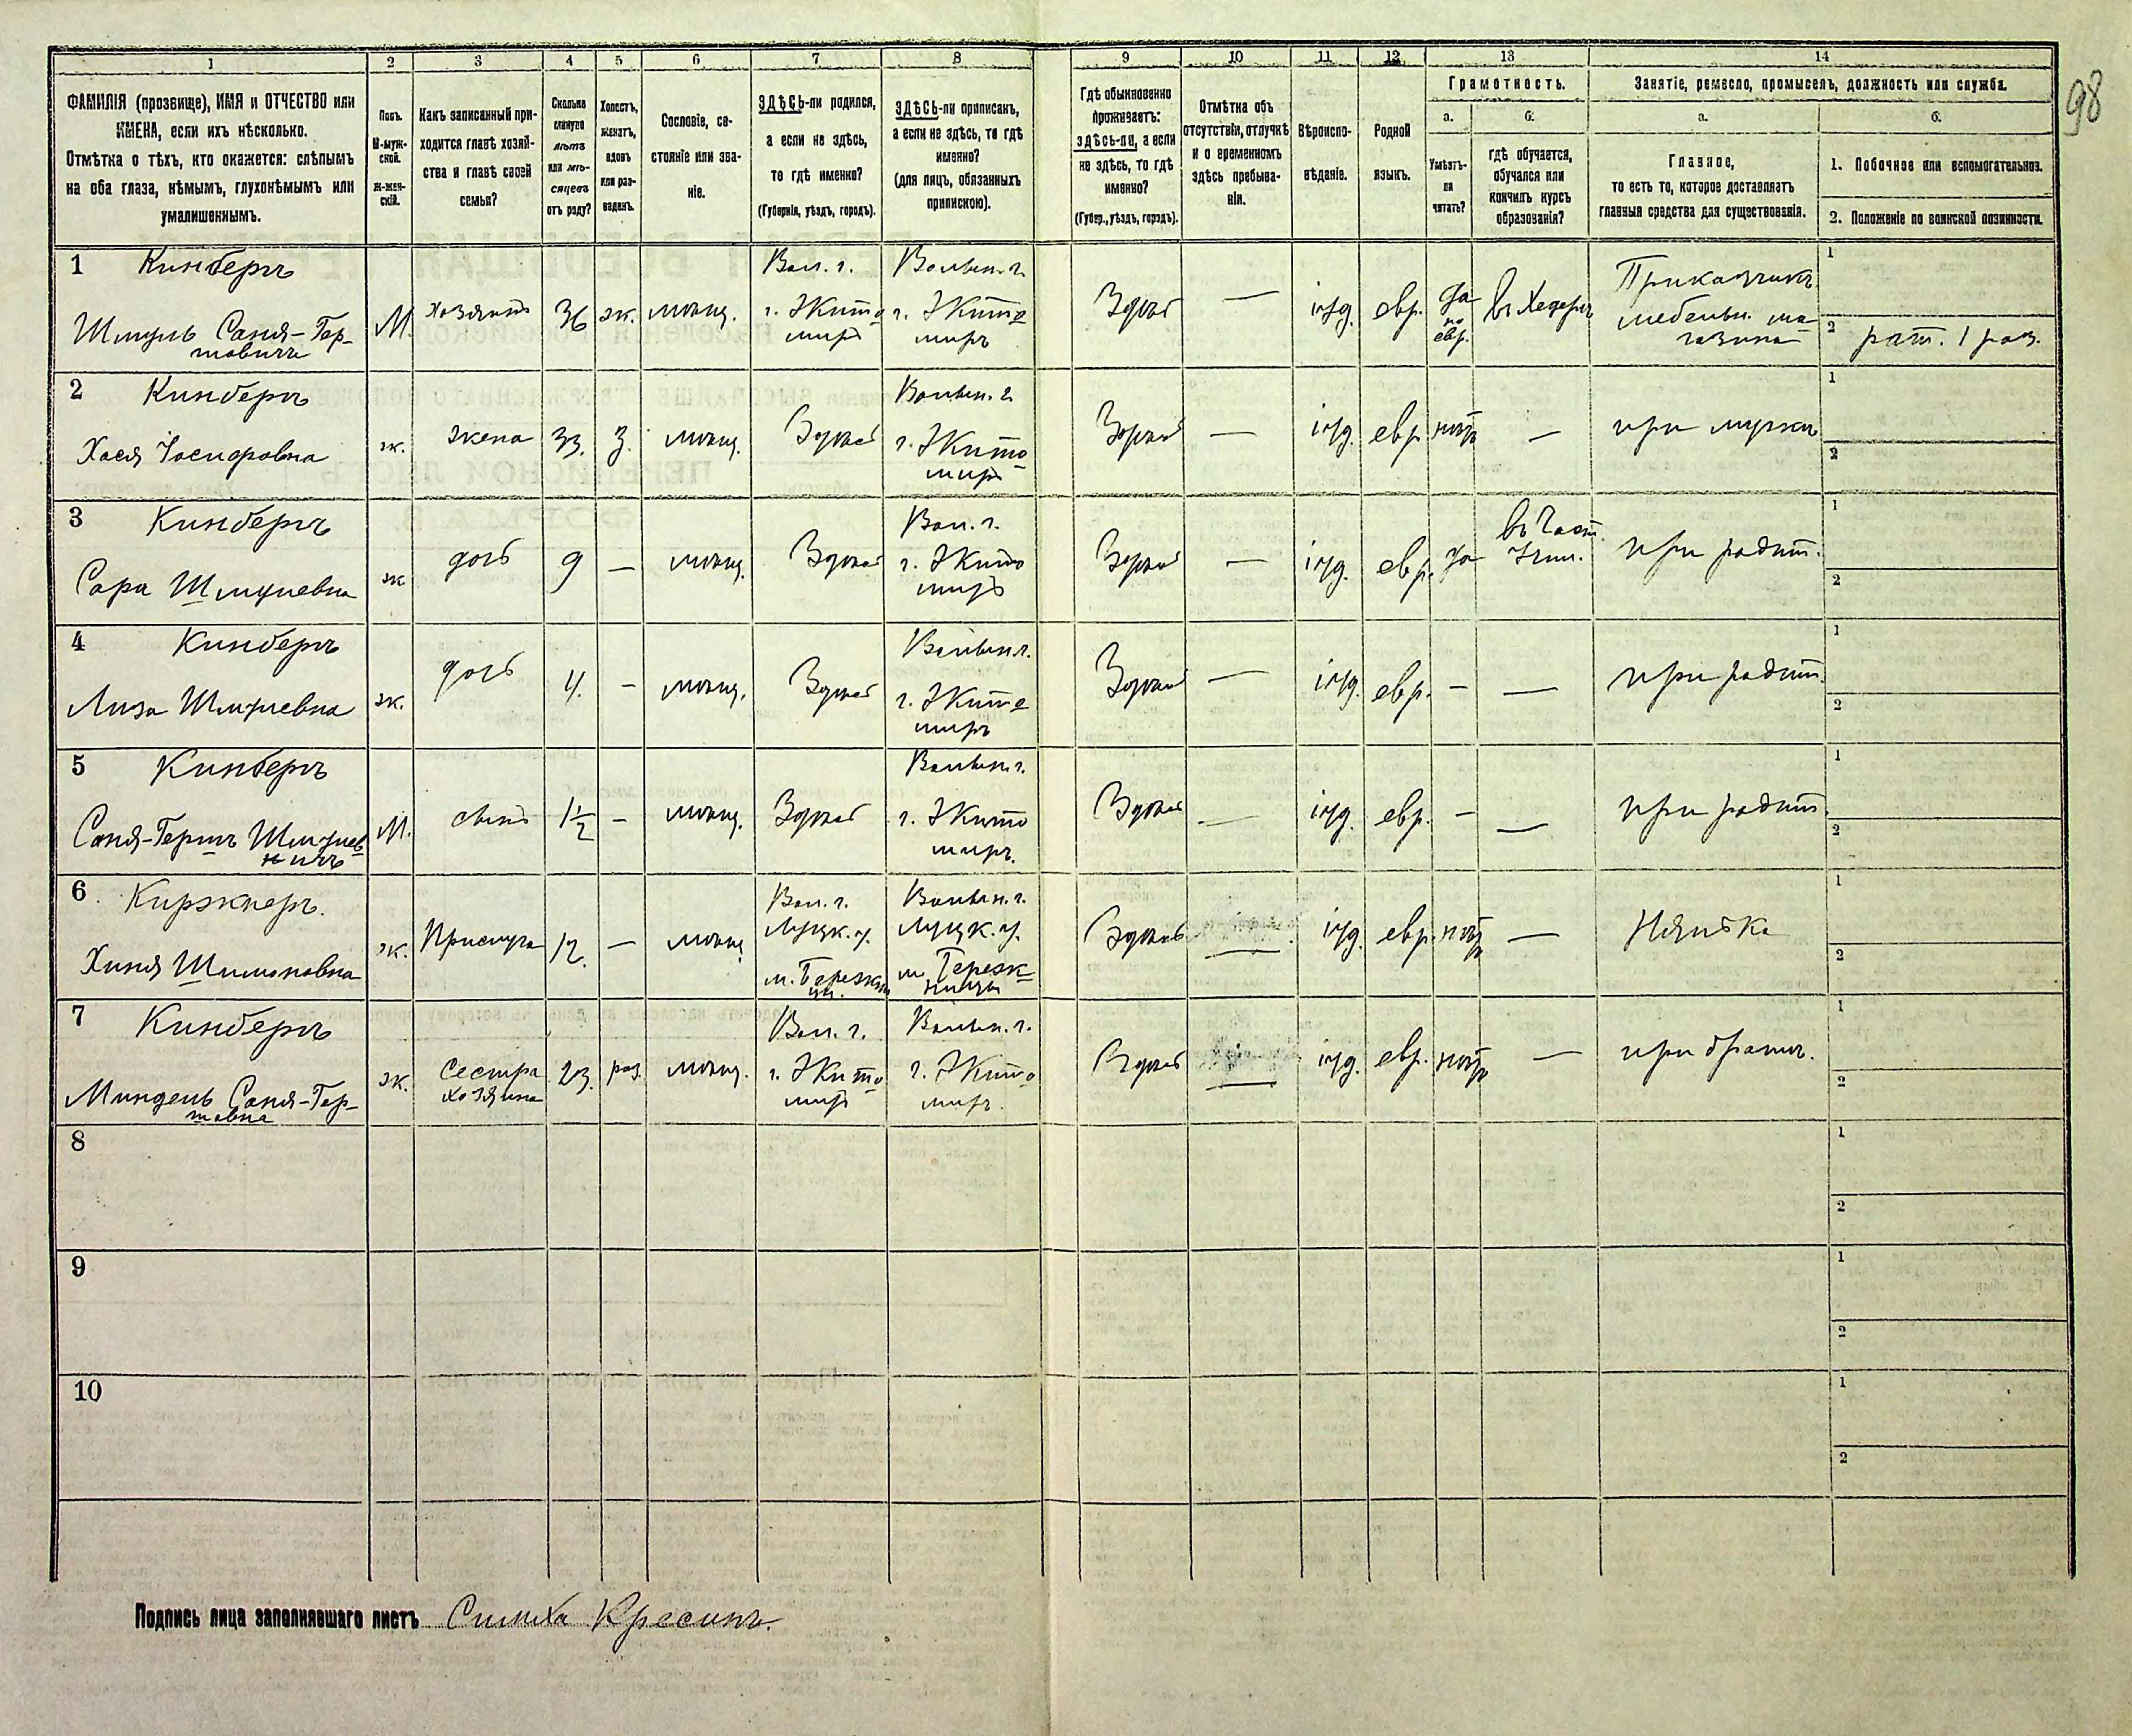 98
1 2 3 4 5 6 7 8 9 10 11 12 13 14
ФАМИЛІЯ (прозвище), ИМЯ и ОТЧЕСТВО или
ИМЕНА, если ихъ нѣсколько.
Отмѣтка о тѣхъ, кто окажется: слѣпымъ
на оба глаза, нѣмымъ, глухонѣмымъ или
умалишеннымъ.
Полъ.
М-муж-
ской.
Ж-жен-
скій.
Какъ записанный при-
ходится главѣ хозяй-
ства и главѣ своей
семьи?
Сколько
минуло
лѣтъ
или мѣ-
сяцевъ
отъ роду?
Холостъ,
женатъ,
вдовъ
или раз-
веденъ.
Сословіе, со-
стояніе или зва-
ніе.
ЗДѢСЬ-ли родился,
а если не здѣсь,
то гдѣ именно?
(Губернія, уѣздъ, городъ).
ЗДѢСЬ-ли приписанъ,
а если не здѣсь, то гдѣ
именно?
(для лицъ, обязанныхъ
припискою).
Гдѣ обыкновенно
проживаетъ:
ЗДѢСЬ-ли, а если
не здѣсь, то гдѣ
именно?
(Губер., уѣздъ, городъ).
Отмѣтка объ
отсутствіи, отлучкѣ
и о временномъ
здѣсь пребыва-
ніи.
Вѣроиспо-
вѣданіе.
Родной
языкъ.
Грамотность.
а.
Умѣетъ-
ли
читать?
б.
гдѣ обучается,
обучался или
кончилъ курсъ
образованія?
Занятіе, ремесло, промыселъ, должность или служба.
а.
Главное,
то есть то, которое доставляетъ
главныя средства для существованія.
б.
1. Побочное или вспомогательное.
2. Положеніе по воинской повинности.
1 Кинбергъ
Шмуль Саня-Гер-
шовичъ
М.
хозяинъ
36
ж.
мѣщ.
Вол. г.
г. Жито
миръ
Волын. г.
г. Жито
миръ
Здѣсь
—
іуд.
евр.
да
по
евр.
въ Хедерѣ
Приказчикъ
мебельн. ма-
газина
1
2 рат. 1 раз.
2 Кинбергъ
Хася Іосифовна
ж.
жена
33.
З.
мѣщ.
Здѣсь
Волын. г.
г. Жито
миръ
Здѣсь
—
іуд.
евр.
нѣтъ
—
при мужѣ
1
2
3 Кинбергъ
Сара Шмулевна
ж.
дочь
9
—
мѣщ.
Здѣсь
Вол. г.
г. Жито
миръ
Здѣсь
—
іуд.
евр.
да
въ Част.
Учил.
при родит.
1
2
4 Кинбергъ
Лиза Шмулевна
ж.
дочь
4.
—
мѣщ.
Здѣсь
Волын. г.
г. Жито
миръ
Здѣсь
—
іуд.
евр.
—
—
при родит.
1
2
5 Кинбергъ
Саня-Гершъ Шмулев
ичъ
М.
сынъ
1½
—
мѣщ.
Здѣсь
Волын. г.
г. Жито
миръ.
Здѣсь
—
іуд.
евр.
—
—
при родит.
1
2
6 Киржнеръ.
Хиня Шимоновна
ж.
Прислуга
12.
—
мѣщ.
Вол. г.
Луцк. у.
Волын. г.
Луцк. у.
Здѣсь
—
іуд.
евр.
нѣтъ
—
Нянька
1
2
7 Кинбергъ
Миндель Саня-Гер-
шовна
ж.
Сестра
хозяина
23.
раз.
мѣщ.
Вол. г.
г. Жито
миръ
Волын. г.
г. Жито
миръ.
Здѣсь
—
іуд.
евр.
нѣтъ
—
при братѣ.
1
2
8
1
2
9
1
2
10
1
2
Подпись лица заполнявшаго листъ Симха Кресинъ.